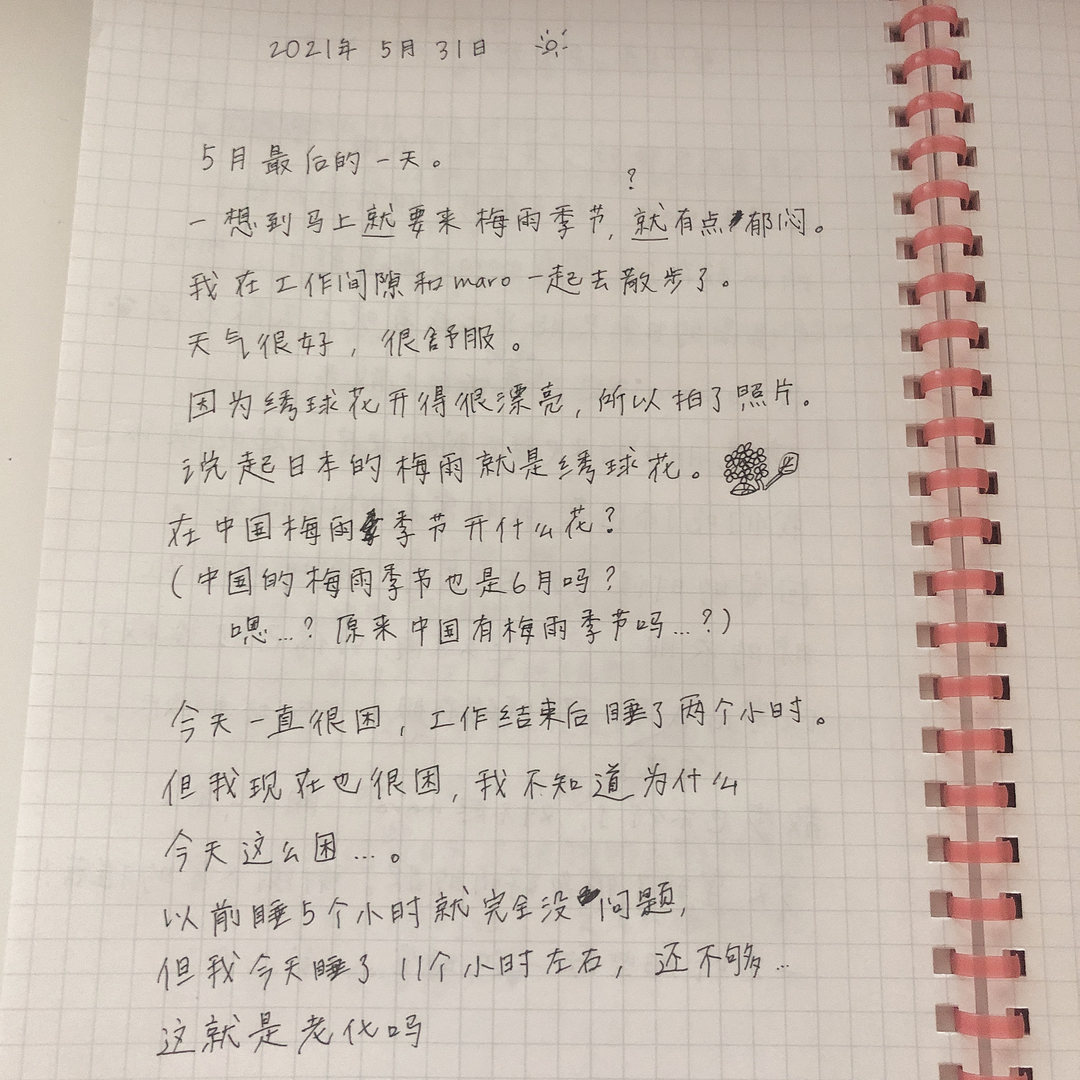 2021年 5月 31日
5月最后的一天。
?
一想到马上就要来梅雨季节,就有点郁闷。
我在工作间隙和maro一起去散步了。
天气很好,很舒服。
因为绣球花开得很漂亮,所以拍了照片。
说起日本的梅雨就是绣球花。
在中国梅雨季节开什么花?
(中国的梅雨季节也是6月吗?
嗯...?原来中国有梅雨季节吗...?)
今天一直很困,工作结束后睡了两个小时。
但我现在也很困,我不知道为什么
今天这么困...。
以前睡5个小时就完全没问题,
但我今天睡了11个小时左右,还不够...
这就是老化吗